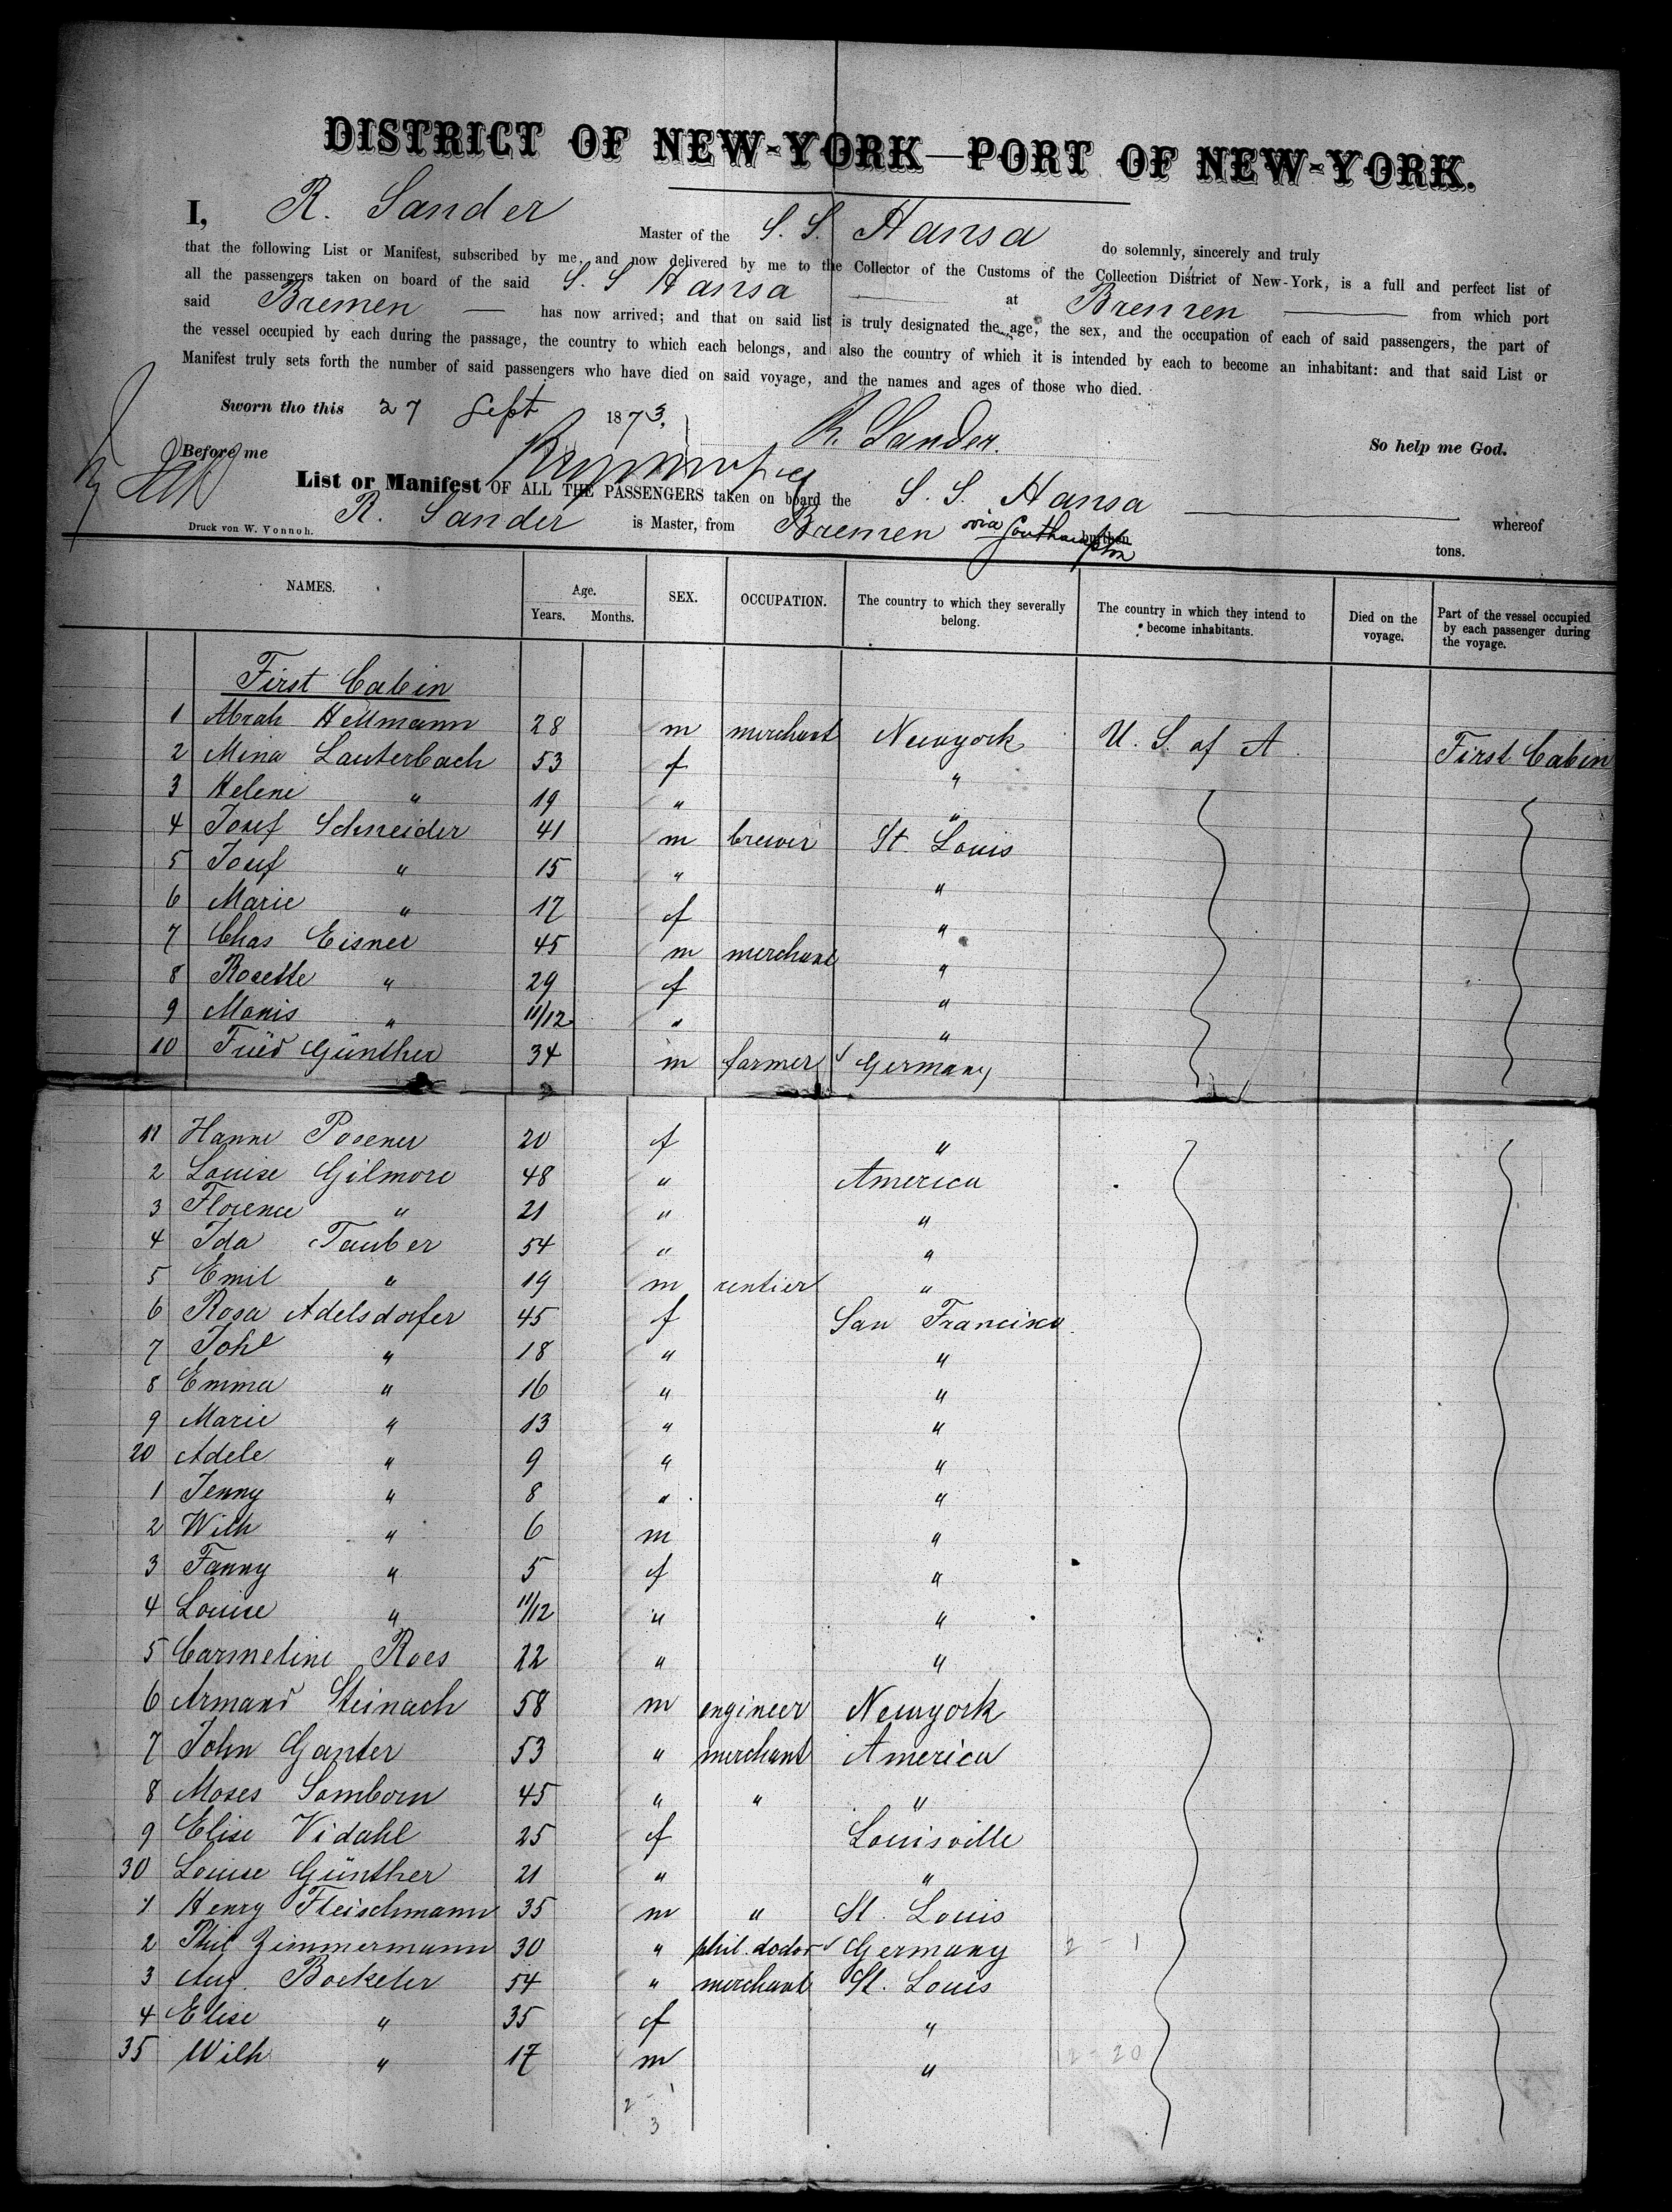 DISTRICT OF NEW-YORK—PORT OF NEW-YORK.
I, R. Sander Master of the S. S. Hansa do solemnly, sincerely and truly
that the following List or Manifest, subscribed by me, and now delivered by me to the Collector of the Customs of the Collection District of New-York, is a full and perfect list of
all the passengers taken on board of the said S. S Hansa at Bremen from which port
said Bremen — has now arrived; and that on said list is truly designated the age, the sex, and the occupation of each of said passengers, the part of
the vessel occupied by each during the passage, the country to which each belongs, and also the country of which it is intended by each to become an inhabitant: and that said List or
Manifest truly sets forth the number of said passengers who have died on said voyage, and the names and ages of those who died.
Sworn tho this 27 Sept 1873. R. Sander. So help me God.
Before me
List or Manifest OF ALL THE PASSENGERS taken on board the S. S. Hansa whereof
R. Sander is Master, from Bremen via Southampton burthen tons.
Druck von W. Vonnoh.
NAMES. Age. Years. Months. SEX. OCCUPATION. The country to which they severally belong. The country in which they intend to become inhabitants. Died on the voyage. Part of the vessel occupied by each passenger during the voyage.
First Cabin
1 Abrah Hellmann 28 m merchant Newyork U. S. of A. First Cabin
2 Mina Lauterbach 53 f "
3 Helene " 19 " "
4 Josef Schneider 41 m brewer St Louis
5 Josef " 15 " "
6 Marie " 17 f "
7 Chas Eisner 45 m merchant "
8 Rosette " 29 f "
9 Monis " 11/12 " "
10 Fried Günther 34 m farmer Germany
11 Hanne Posener 20 f "
2 Louise Gilmore 48 " America
3 Florence " 21 " "
4 Ida Tauber 54 " "
5 Emil " 19 m rentier "
6 Rosa Adelsdorfer 45 f San Francisco
7 Johl " 18 " "
8 Emma " 16 " "
9 Marie " 13 " "
20 Adele " 9 " "
1 Jenny " 8 " "
2 Wilh " 6 m "
3 Fanny " 5 f "
4 Louise " 11/12 " "
5 Carmeline Roes 22 " "
6 Armand Steinach 58 m engineer Newyork
7 John Ganter 53 " merchant America
8 Moses Somborn 45 " " "
9 Elise Vidahl 25 f Louisville
30 Louise Günther 21 " "
1 Henry Fleischmann 35 m " St. Louis
2 Phil Zimmermann 30 " phil. doctor Germany 2 - 1
3 Aug. Boekeler 54 " merchant St. Louis
4 Elise " 35 f "
35 Wilh " 17 m " 12 - 20
2 - 1
3